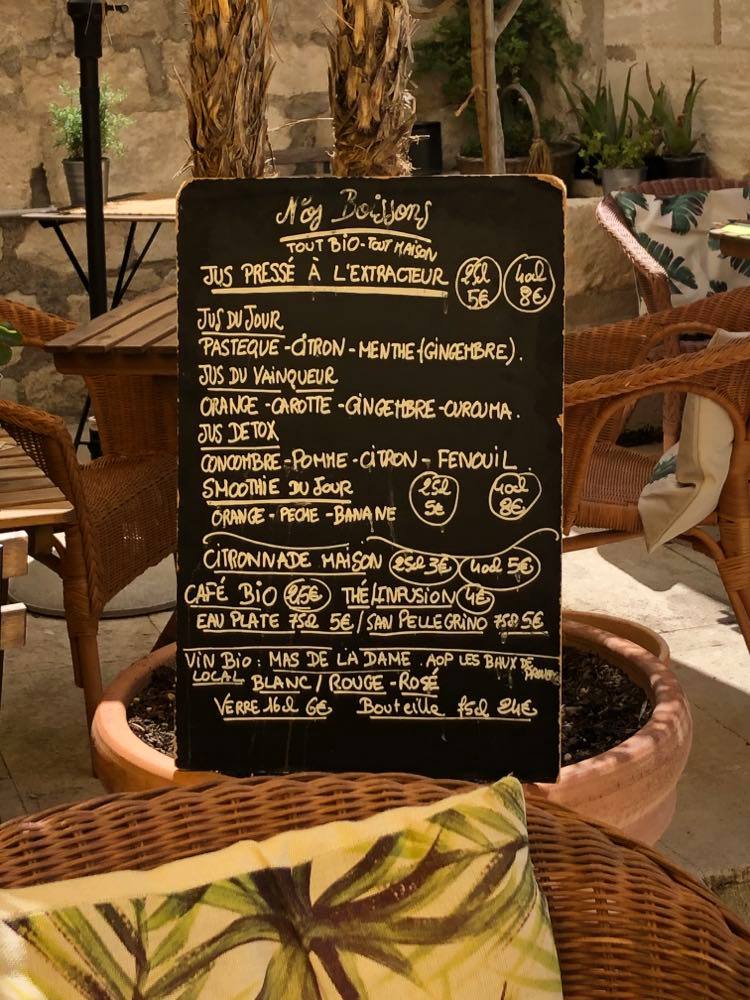 Nos Boissons
TOUT BIO-TOUT MAISON
JUS PRESSÉ À L'EXTRACTEUR 25cl 5€ 40cl 8€
JUS DU JOUR
PASTEQUE - CITRON - MENTHE - (GINGEMBRE).
JUS DU VAINQUEUR
ORANGE - CAROTTE - GINGEMBRE - CURCUMA.
JUS DETOX
CONCOMBRE - POMME - CITRON - FENOUIL.
SMOOTHIE DU JOUR 25cl 5€ 40cl 8€
ORANGE - PECHE - BANANE
CITRONNADE MAISON 25cl 3€ 40cl 5€
CAFÉ BIO 2.5€ THÉ/INFUSION 4€
EAU PLATE 75cl 5€ / SAN PELLEGRINO 75cl 5€
VIN BIO : MAS DE LA DAME . AOP LES BAUX DE PROVENCE
LOCAL BLANC / ROUGE - ROSÉ
VERRE 16cl 6€ Bouteille 75cl 24€